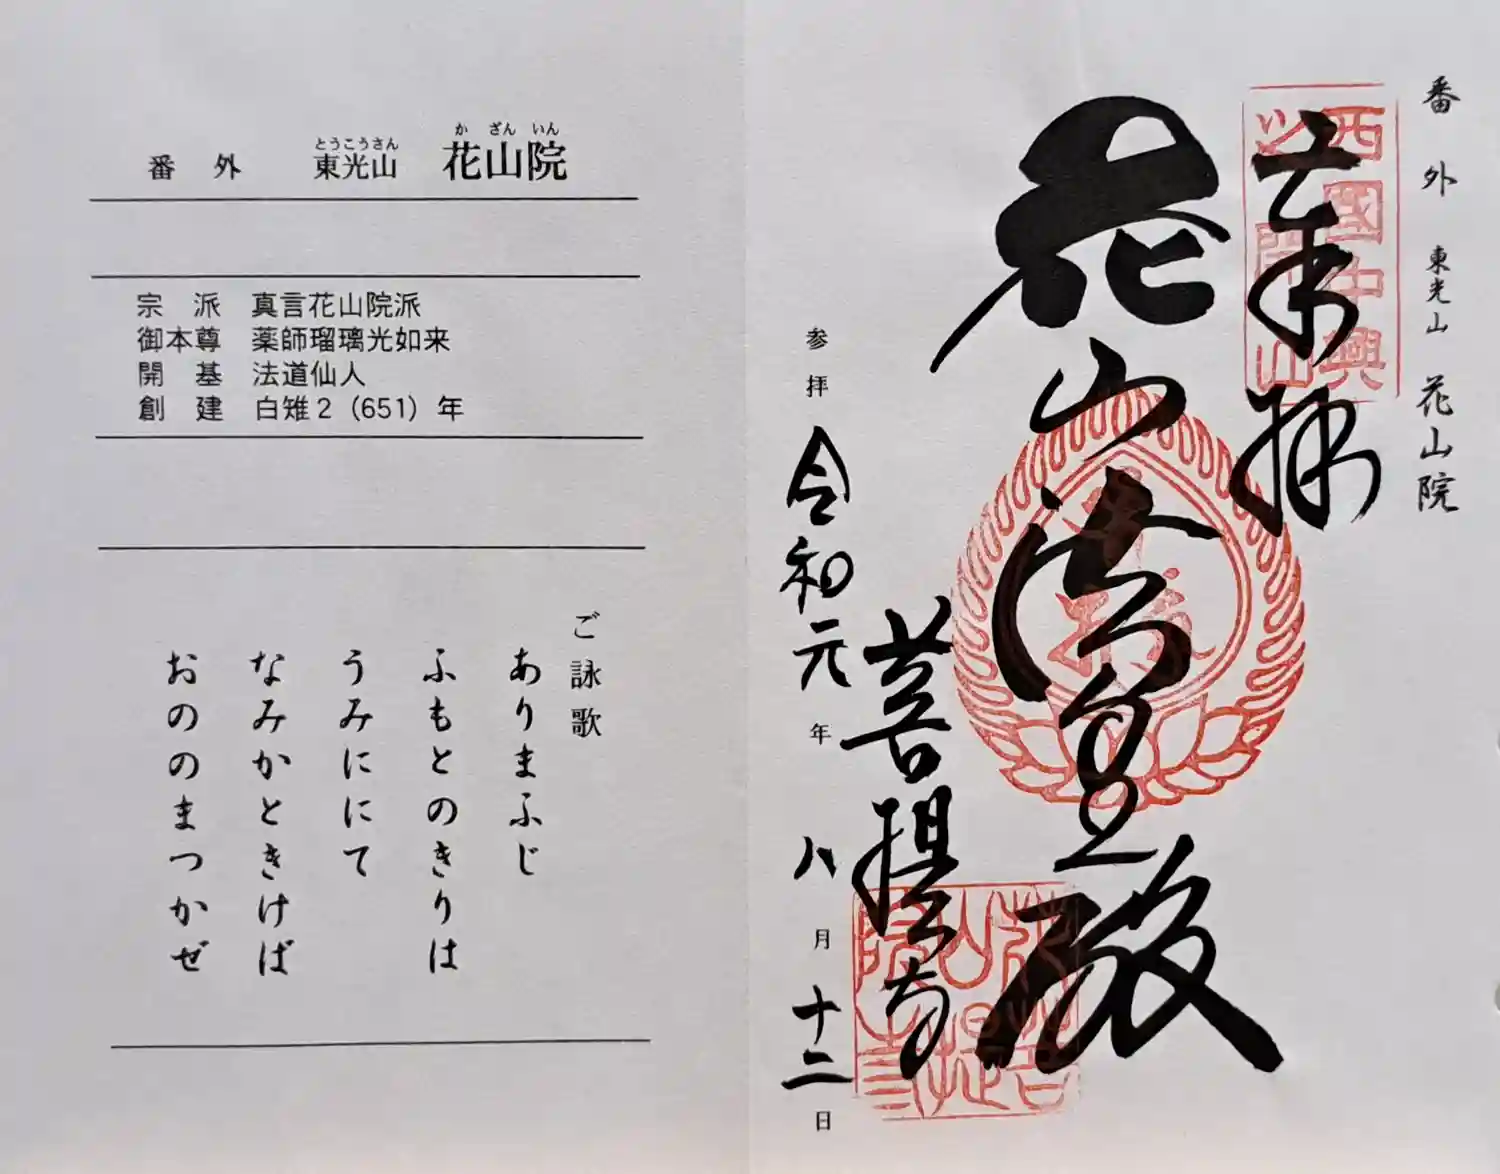 番外 東光山 花山院
とうこうさん か ざん いん
宗派 真言花山院派
御本尊 薬師瑠璃光如来
開基 法道仙人
創建 白雉2（651）年
ご詠歌
ありまふじ
ふもとのきりは
うみににて
なみかときけば
おののまつかぜ
番外 東光山 花山院
西國中興
奉拝
花山法皇殿
菩提寺
参拝 令和元年 八月 十二日